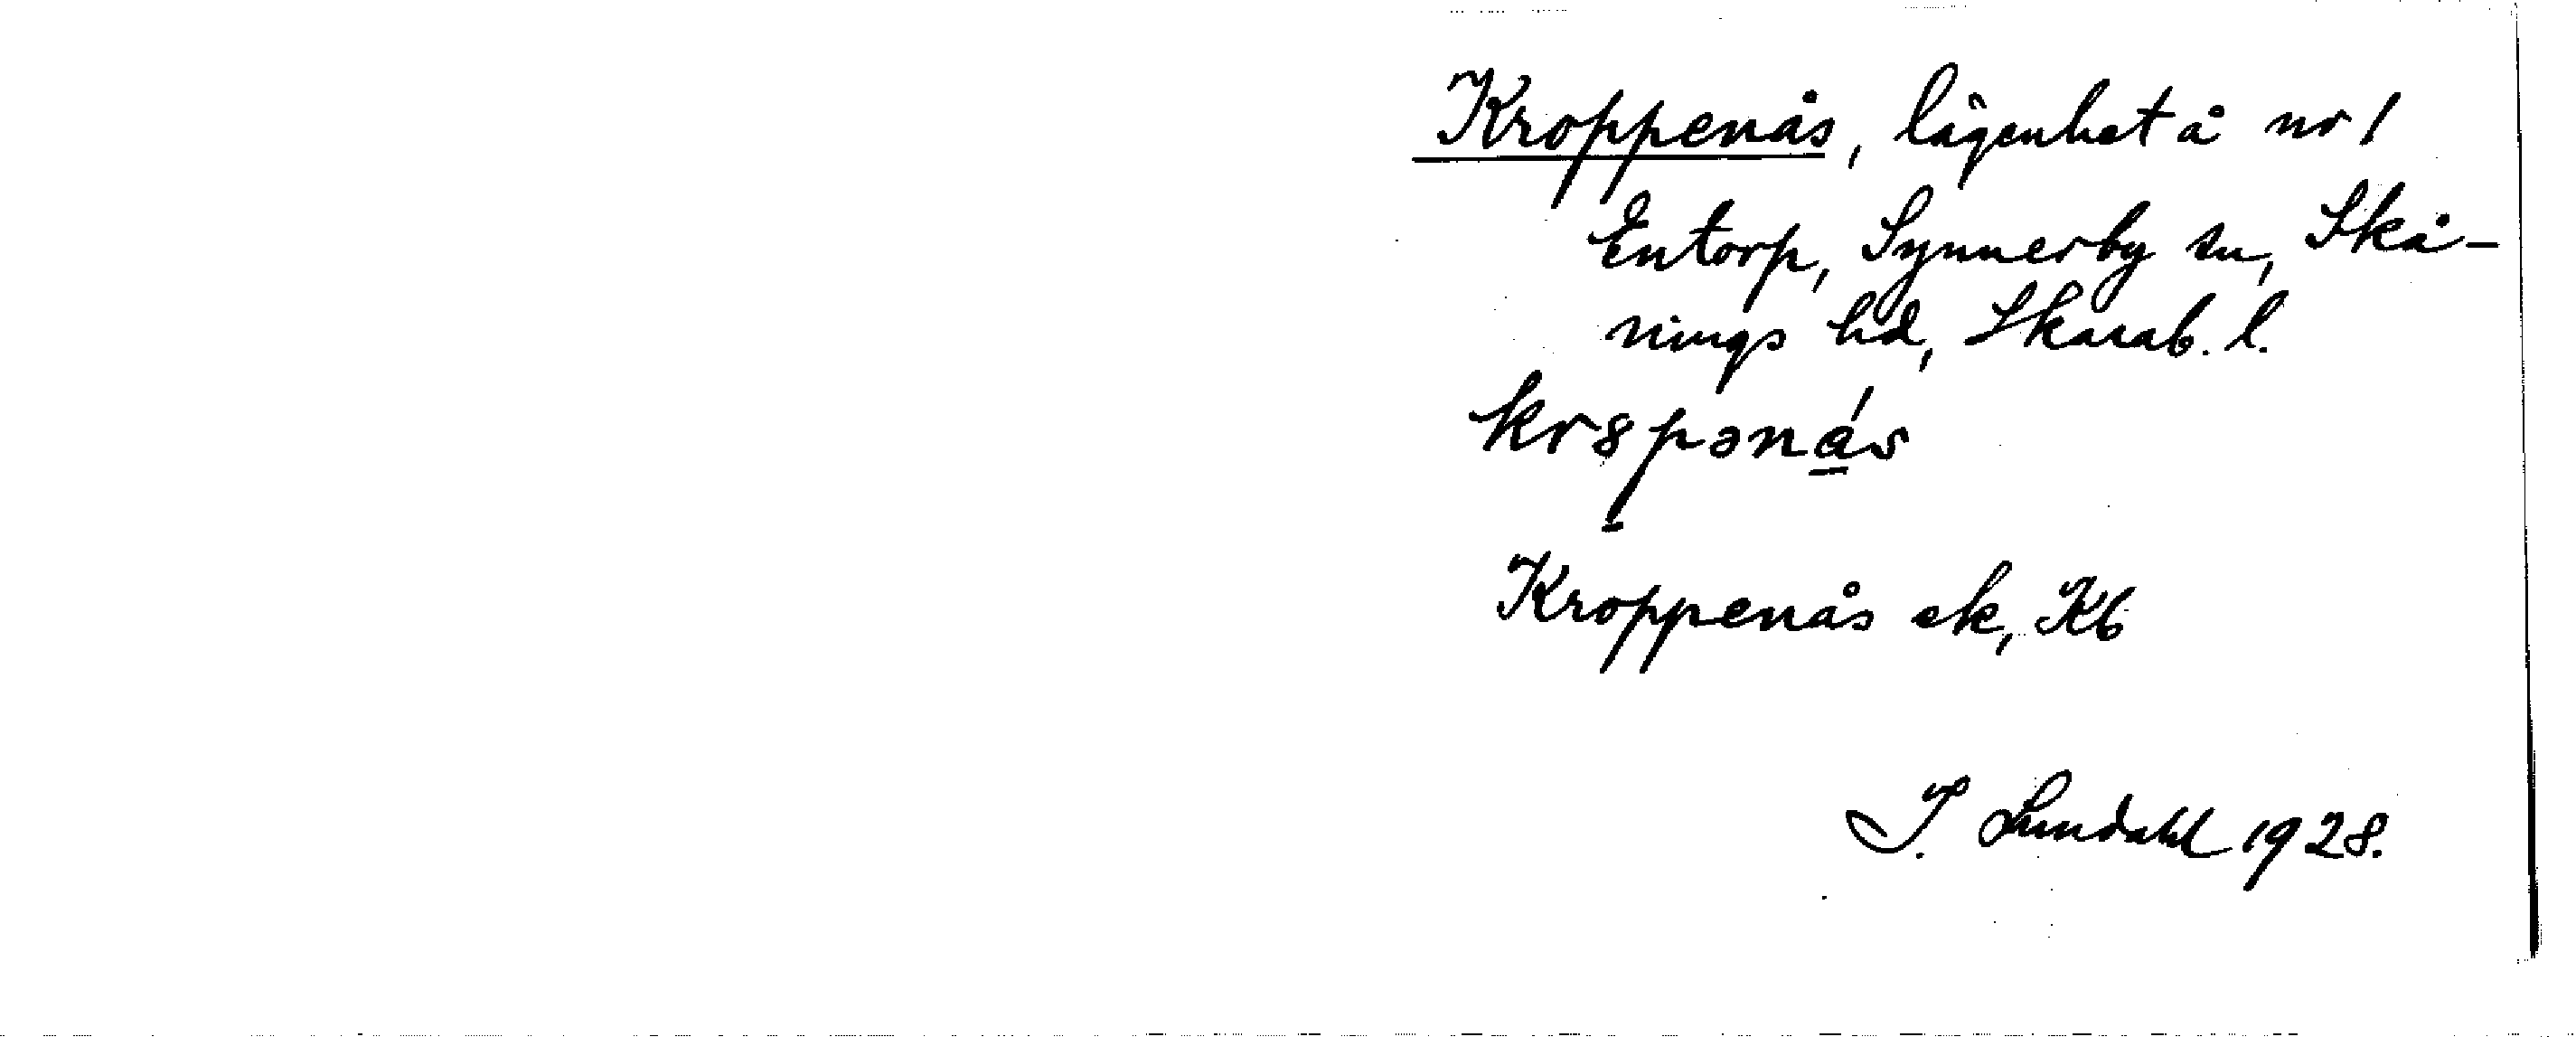 Kroppenås, lägenhet å nr 1
Entorp, Synnerby sn, Skå-
nings hd, Skarab. l.
kr8pənás
Kroppenås ek, Kb
I. Lundahl 1928.